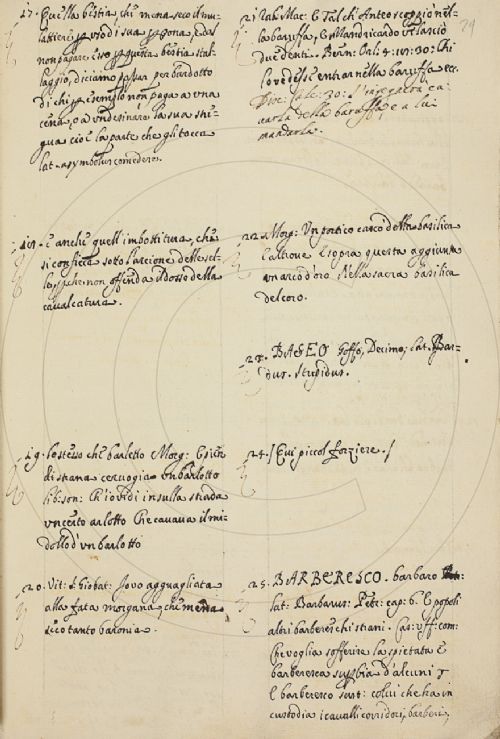 17. Quella bestia, che mena seco il mu-
lattiere per uso di sua persona, e dal
non pagare per questa bestia stal-
laggio, diciamo passar per bardotto
di chi per esempio non paga a una
cena, o a un desinare la sua sti-
gua cioè la parte che gli tocca
lat. asymbolus comedere.
è anche quell'imbottitura, che
si conficca sotto l'arcione delle sel-
le, perche non offenda il dosso della
cavalcatura.
19. lo stesso che barletto Morg: e pien
di strana cervogia un barlotto
lib: son: Ch'io vidi in sulla strada
un certo arlotto che cavava il mi-
dollo d'un barlotto
20. Vit: fovo agguagliata
alla fata morgana, che mena
seco tanto baronia.
29
21 Iac: Mac: E tal ch'Anteo scoppiò nel-
la baruffa, e Mandricardo vi lasciò
due denti. Bern: Orl: 4: 30: Chi
lo vedesse entrar nella baruffa ecc.
carla della baruffa, e a lui
mandarla.
22. Morg: Un portico cascò della basilica
e altrove e sopra questa aggiunta
un arco d'oro nella sacra basilica
del coro.
23. BAGEO goffo, Decimo; lat. Bar-
dus. stupidus.
24. / Qui piccol forziere. /
25. BARBERESCO. barbaro
lat: Barbarus: Petr: cap: 6. E popoli
altri barbereschi stiani. Cas: uff: com:
Che voglia sofferire la spietata e
barberesca superbia d'alcuni
E barberesco sust: colui che ha in
custodia i cavalli corridori, barberi,